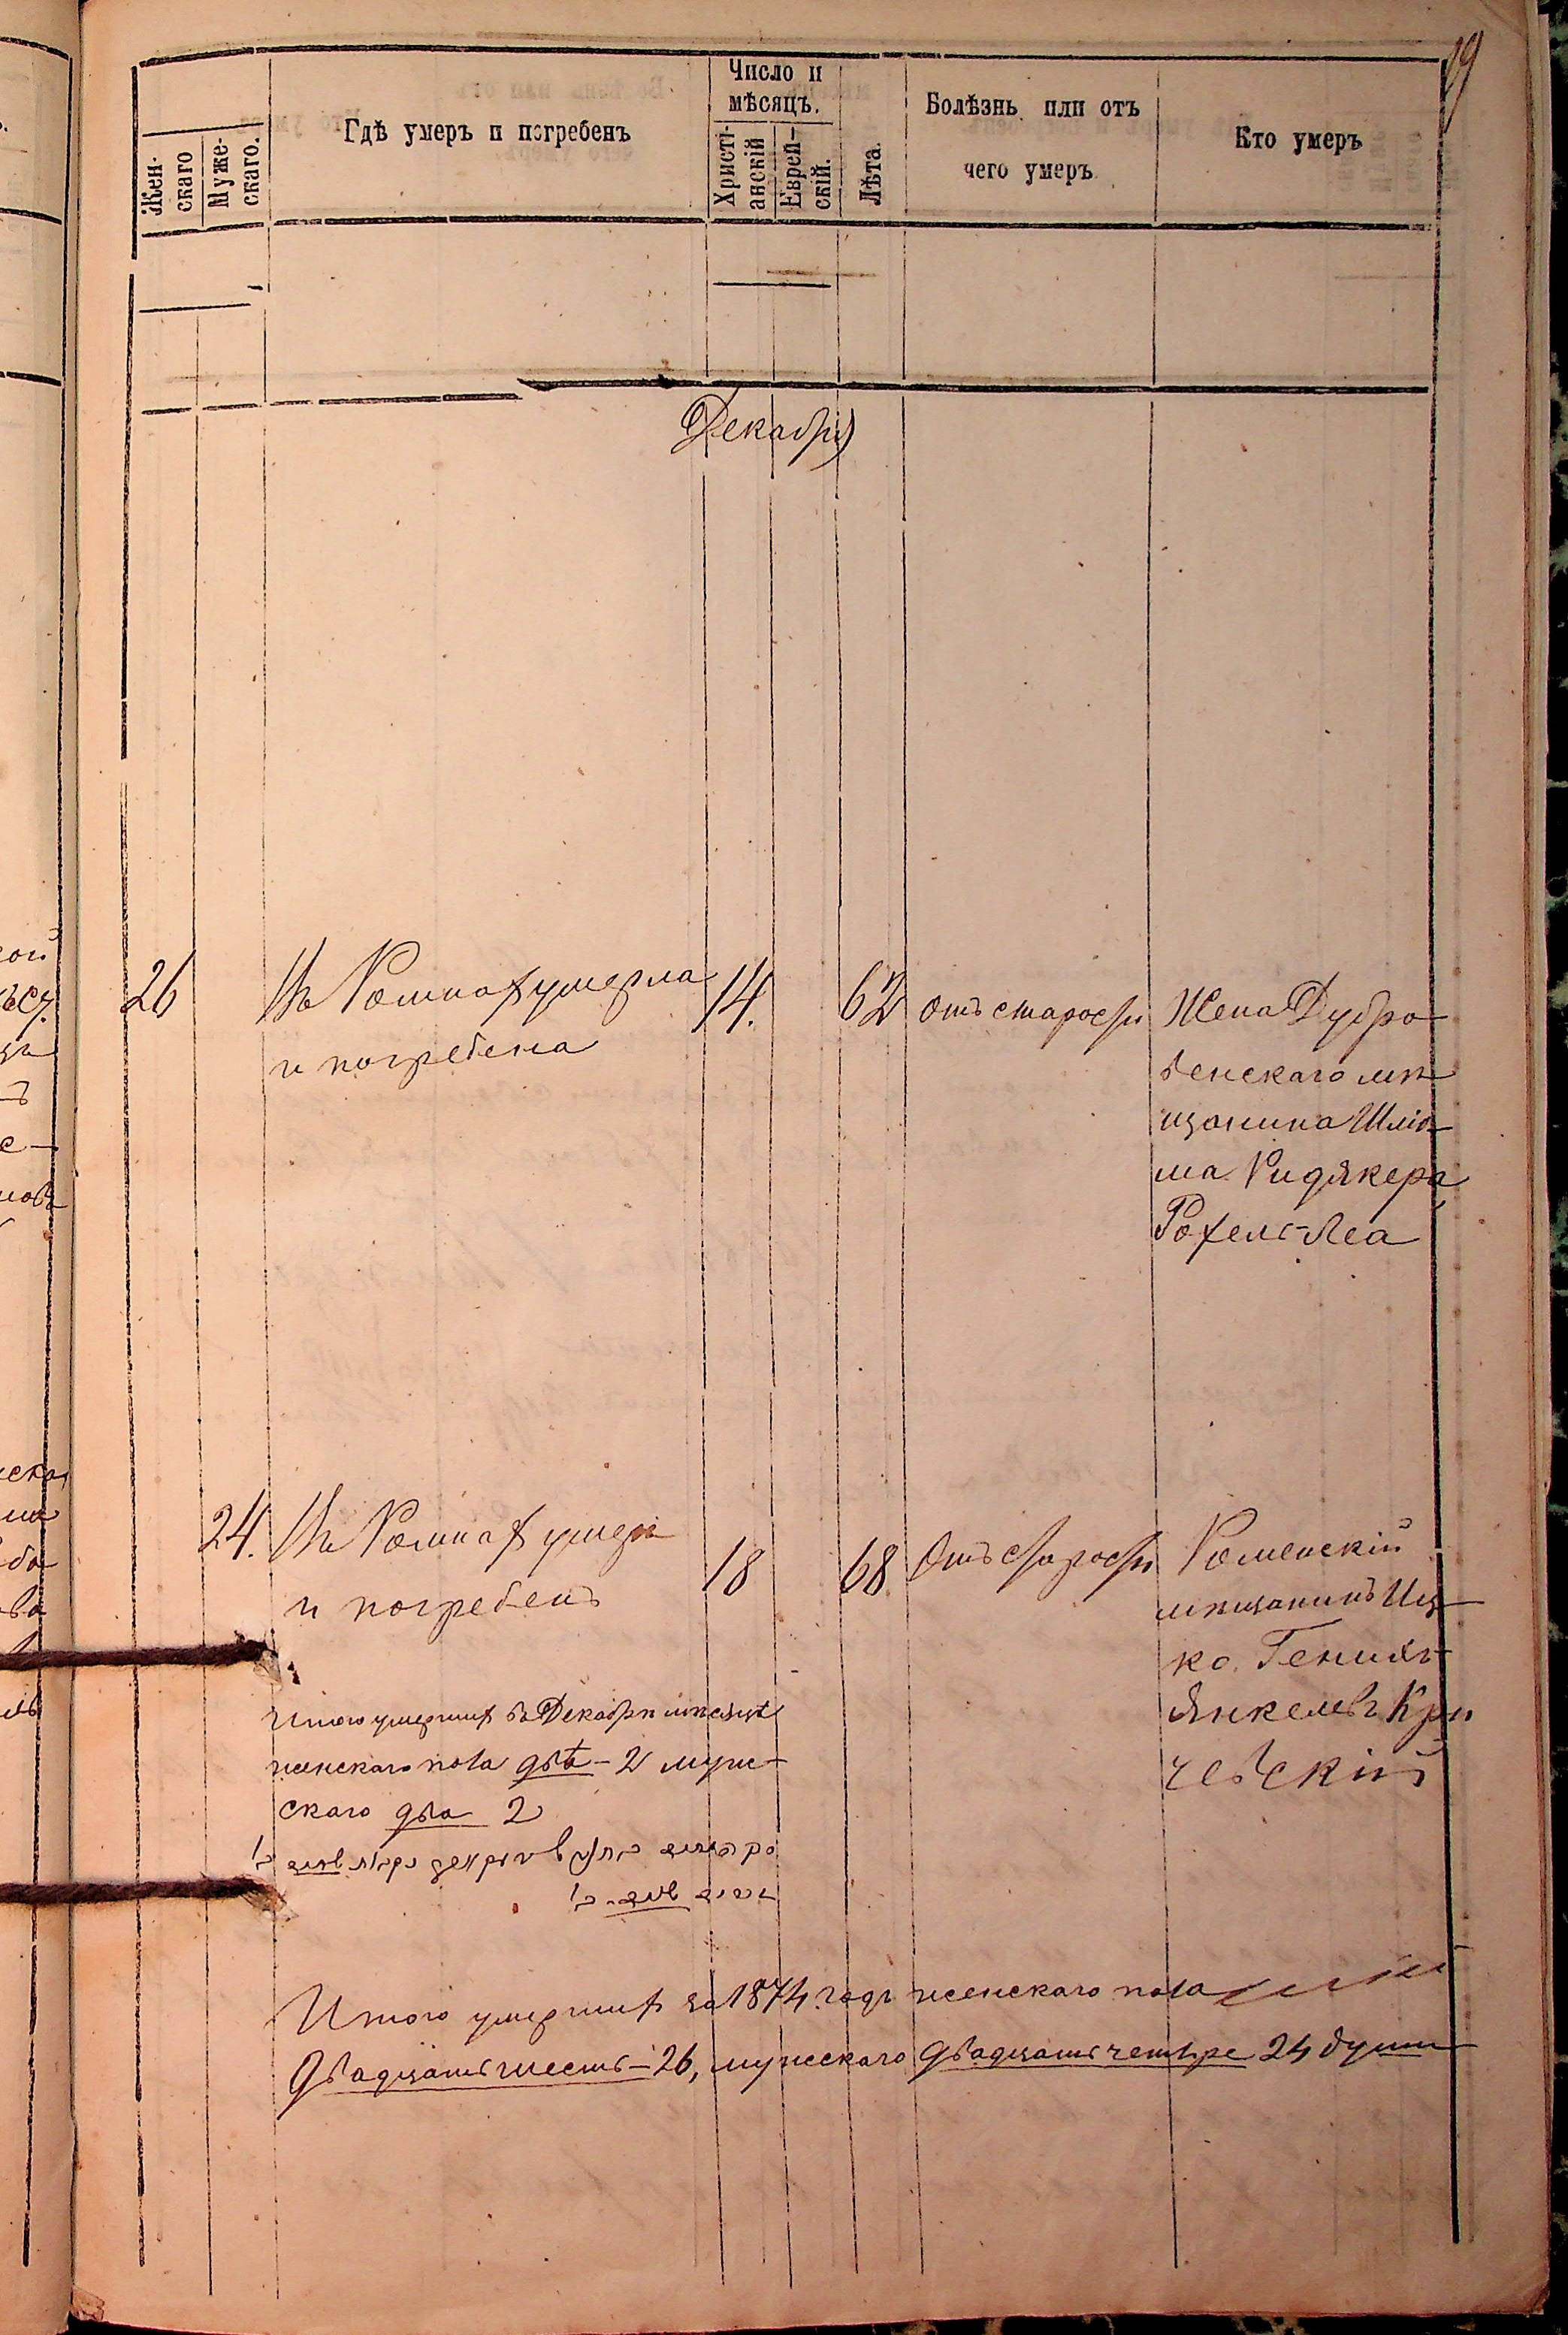 19
Жен-
скаго
Муже-
скаго.
Гдѣ умеръ и погребенъ
Число и
мѣсяцъ.
Христі-
анскій
Еврей-
скій.
Лѣта.
Болѣзнь или отъ
чего умеръ
Кто умеръ
Декабрь
26
Въ Ромнах умерла
и погребена
14.
62
отъ старости
Жена Дубро-
венскаго мѣ-
щанина Шлio-
ма
Рохель-Леа
24.
Въ Ромнах умеръ
и погребенъ
18
68
Отъ старости
Роменскій
мѣщанинъ Иц-
ко Генихъ
Янкелевъ Кри
чевскій
Итого умерших въ Декабрѣ мѣсяцѣ
женскаго пола двѣ - 2 муж-
скаго два 2
Итого умерших за 1874 годъ женскаго пола
двадцать шесть - 26, мужескаго двадцать четыре 24 души